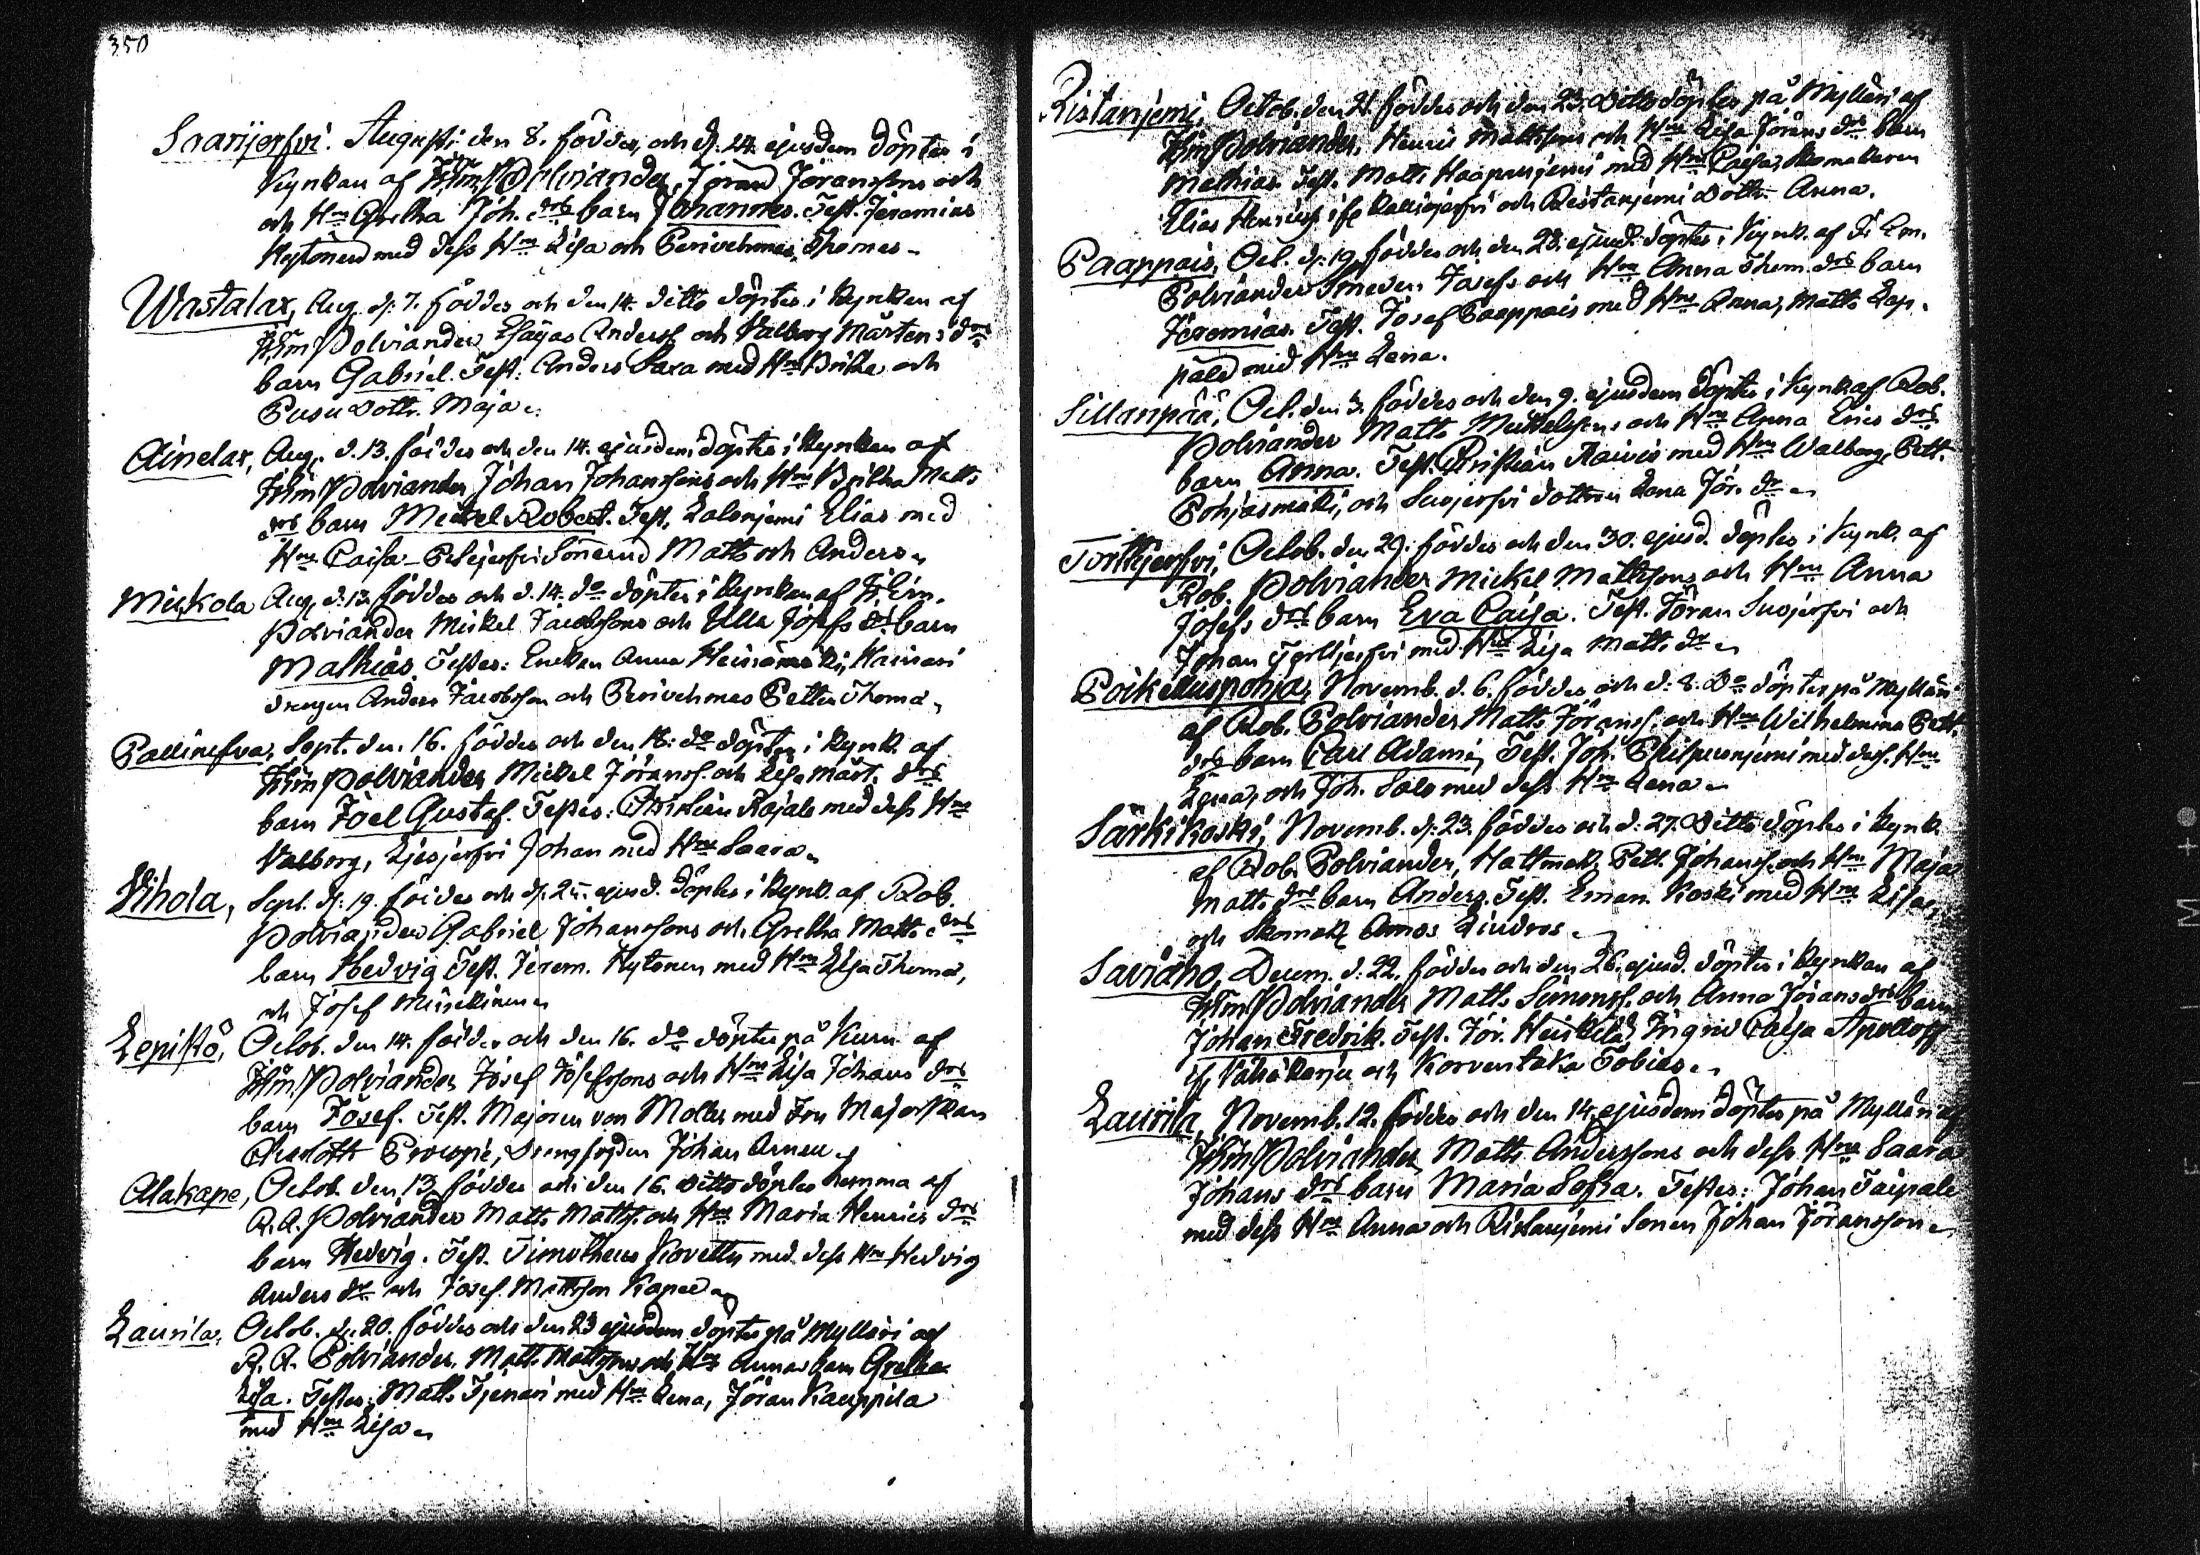 350
Saarijerfvi. Augusti den 8. föddes, och d. 14. ejusdem döptes i
Kyrkan af Polviander, Jörand Jöranssons och
och Hus Gretha Joh. drs barn Johannes. Test. Jeremias
Hytönen med dess Hu Lisa och Perivehmas Thomas
Wastalax, Aug. d. 7. föddes och den 14. ditto döptes i Kyrkan af
Polviander, Esaias Anderss. och Valborg Mårtens drs
barn Gabriel. Test: Anders Saxa med Hu Britha och
Pusu dottr. Maja
Ainelax, Aug. d. 13. föddes och den 14. ejusdem döptes i kyrkan af
Polviander Johan Johanssons och Hus Britha Matts
drs barn Mickel Robert. Test. Elias med
Hu Caisa Matts och Anders
Mickola Aug. d. 13. föddes och d. 14. do döptes i kyrkan af
Polviander Mickel Jacobssons och Ulla Josefs drs barn
Mathias. Testes: Enckan Anna Heinämäki,
drengen Anders Jacobsson och Perivehmas Petter Thoma
Pallinefva, Sept. den 16. föddes och den 18. do döptes i kyrk. af
Polviander Mickel Jöranss. och Lisa Mårt. drs
barn Joel Gustaf. Testes: Christian Rajala med dess Hu
Valborg, Johan med Hu Saara
Vihola, Sept. d. 19. föddes och d. 25. ejusd. döptes i kyrk. af Rob.
Polviander Gabriel Johanssons och Gretha Matts drs
barn Hedvig Test. Jerem. Hytonen med Hu Lisa Thoma,
och Josef
Lepistö, Octob. den 14. föddes och den 16. do döptes på Kuru af
Polviander Josef Josefssons och Hus Lisa Johans drs
barn Josef. Test. Majoren von Moller med Fru Majorskan
Charlotte Procopé, Drengfogden Johan
Alakape, Octob. den 13. föddes och den 16. ditto döptes hemma af
R. A. Polviander Matts Matts. och Hus Maria Henrics drs
barn Hedvig. Test. Timotheus med dess Hu Hedvig
Anders dr och Josef Mattsson Kapee
Laurila, Octob. d. 20. föddes och den 23 ejusdem döptes på Mylläri af
R. A. Polviander, Matts Mattsons och Hus Annas barn Gretha
Lisa. Testes: Matts med Hu Lena, Jöran Kauppila
med Hu Lisa
Ristanjemi, Octob. den 21. föddes och den 23. ditto döptes på Mylläri af
Polviander, Henric Mattssons och Hus Lisa Jörans drs barn
Mathias. Test. Matts Haapanjemi med Hu Caisa, Skomakaren
Elias och Ristanjemi Dottr. Anna.
Paappais, Oct. d. 19. föddes och den 28. ejusd. döptes i kyrk. af
Polviander Smeden Josefs och Hus Anna Thom. drs barn
Jeremias. Test. Josef Paappais med Hu Anna, Matts Lep-
päld med Hu Lena.
Sillanpää, Oct. den 3. föddes och den 9. ejusdem döptes i kyrk. af Rob.
Polviander Matts Mickelssons och Hus Anna Erics drs
barn Anna. Test. Christian med Hu Walborg, Pett.
Pohjasmäki, och Suojerfvi dottren Lena Jör. dr
Torttjerfvi, Octob. den 29. föddes och den 30. ejusd. döptes i kyrk. af
Rob. Polviander Mickel Mattssons och Hus Anna
Josefs drs barn Eva Caisa. Test. Jöran Suojerfvi och
Johan Torttjerfvi med Hu Lisa Matts dr
Poikelluspohja, Novemb. d. 6. föddes och d. 8. do döptes på Mylläri
af Rob. Polviander Matts Jöranss. och Hus Wilhelmina Pett.
drs barn Carl Adam. Test. Joh. med dess Hu
Lena, och Joh. Salo med dess Hu Lena
Särkikoski, Novemb. d. 23. föddes och d. 27. ditto döptes i kyrk.
af Rob. Polviander, Hattmak. Pett. Johanss. och Hus Maja
Matts drs barn Anders. Test. Eman. Koski med Hu Lisa,
och Skomak. Amos Lindros.
Saviaho, Decem. d. 22. föddes och den 26. ejusd. döptes i kyrkan af
Polviander Matts Simonss. och Anna Jörans drs barn
Johan Fredrik. Test. Jör. Heickilä, Ingrid Caisa
och Korventaka Tobias
Laurila, Novemb. 12. föddes och den 14. ejusdem döptes på Mylläri af
Polviander Matts Anderssons och dess Hus Saara
Johans drs barn Maria Sofia. Testes: Johan Taipale
med dess Hu Anna och Ristanjemi Sonen Johan Jöransson